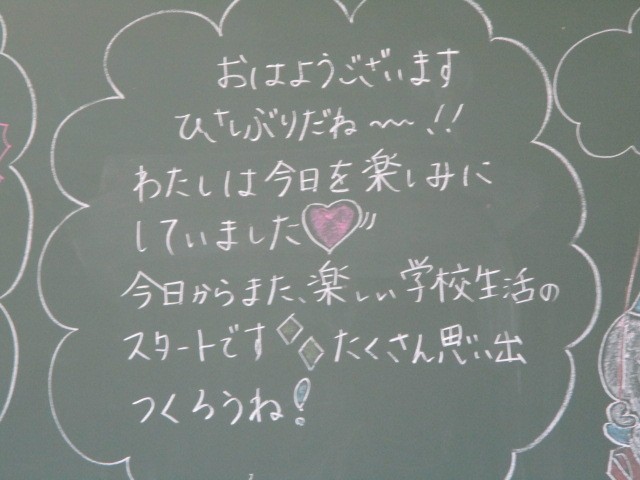 おはようございます
ひさしぶりだね〜!!
わたしは今日を楽しみに
していました
今日からまた、楽しい学校生活の
スタートです たくさん思い出
つくろうね!